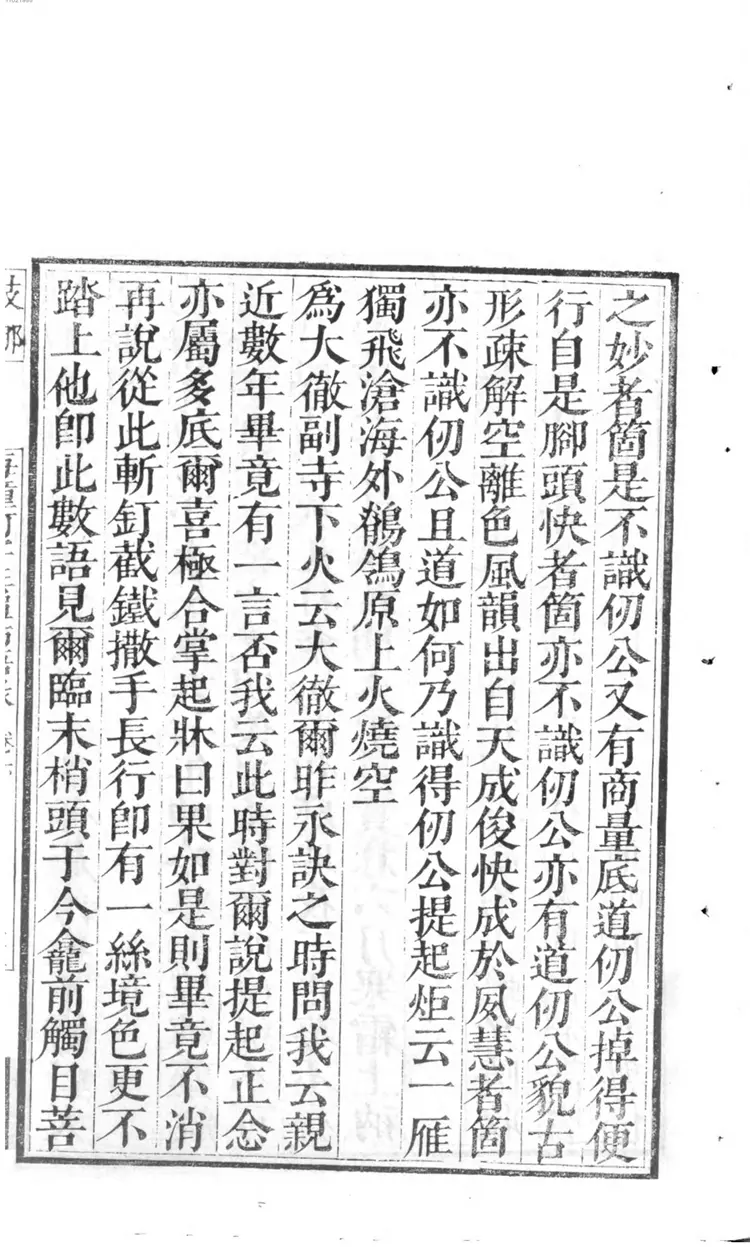 之妙者箇是不識仞公又有商量底道仞公掉得便
行自是腳頭快者箇亦不識仞公亦有道仞公貌古
形疎解空離色風韻出自天成俊快成於夙慧者箇
亦不識仞公且道如何乃識得仞公提起炬云一雁
獨飛滄海外鶺鴒原上火燒空
爲大徹副寺下火云大徹爾昨永訣之時問我云親
近數年畢竟有一言否我云此時對爾說提起正念
亦屬多底爾喜極合掌起牀曰果如是則畢竟不消
再說從此斬釘截鐵撒手長行卽有一絲境色更不
踏上他卽此數語見爾臨末梢頭于今龕前觸目菩